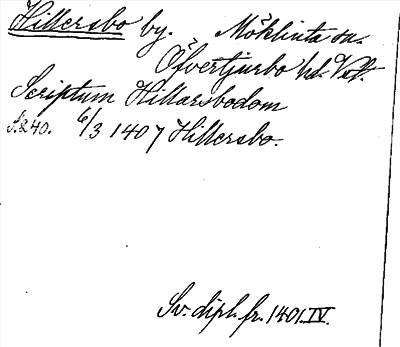 Hillersbo by. Möklinta sn.
Öfvertjurbo hd. Vstm.
Scriptum Hillarsbodom
S. 240. 6/3 1407 Hillersbo.
Sv. dipl. fr. 1401. IV.